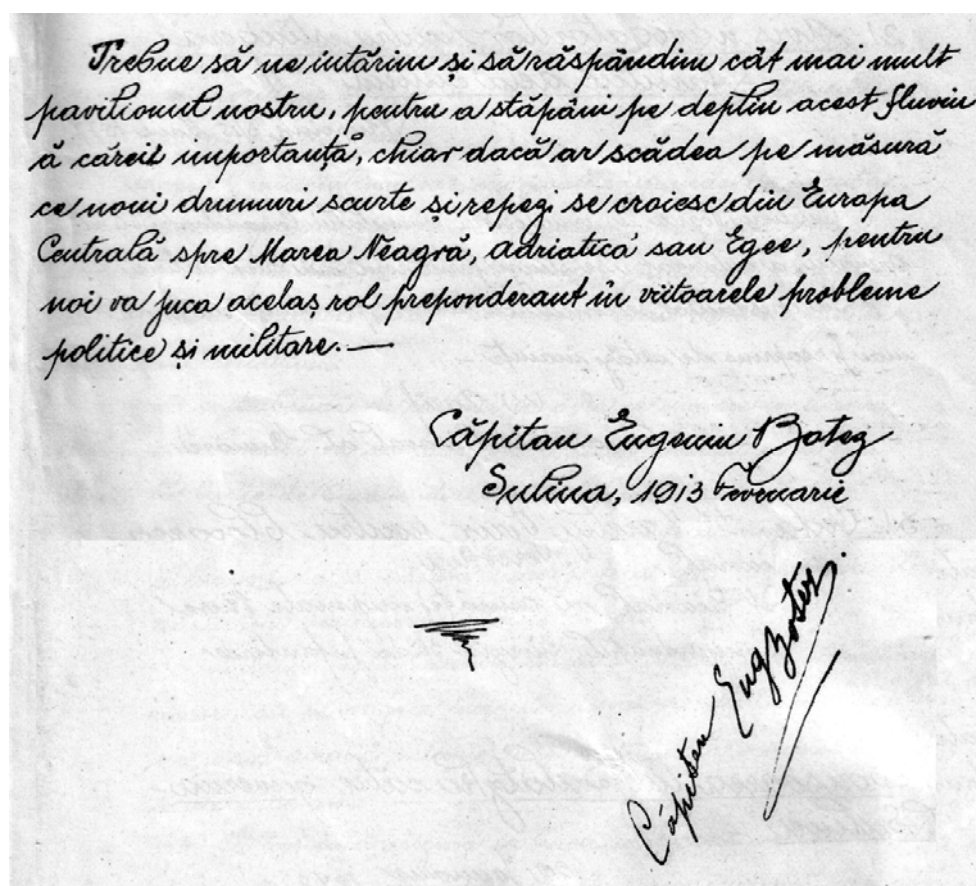 Trebue să ne intărim și să răspândim cât mai mult
pavilionul nostru, pentru a stăpâni pe deplin acest fluviu
ă cărei importanță, chiar dacă ar scădea pe măsură
ce noui drumuri scurte și repezi se croiesc din Europa
Centrală spre Marea Neagră, Adriatică sau Egee, pentru
noi va juca acelaș rol preponderant în viitoarele probleme
politice și militare. —
Căpitan Eugeniu Botez
Sulina, 1913 Fevruarie
Căpitan Eug Botez